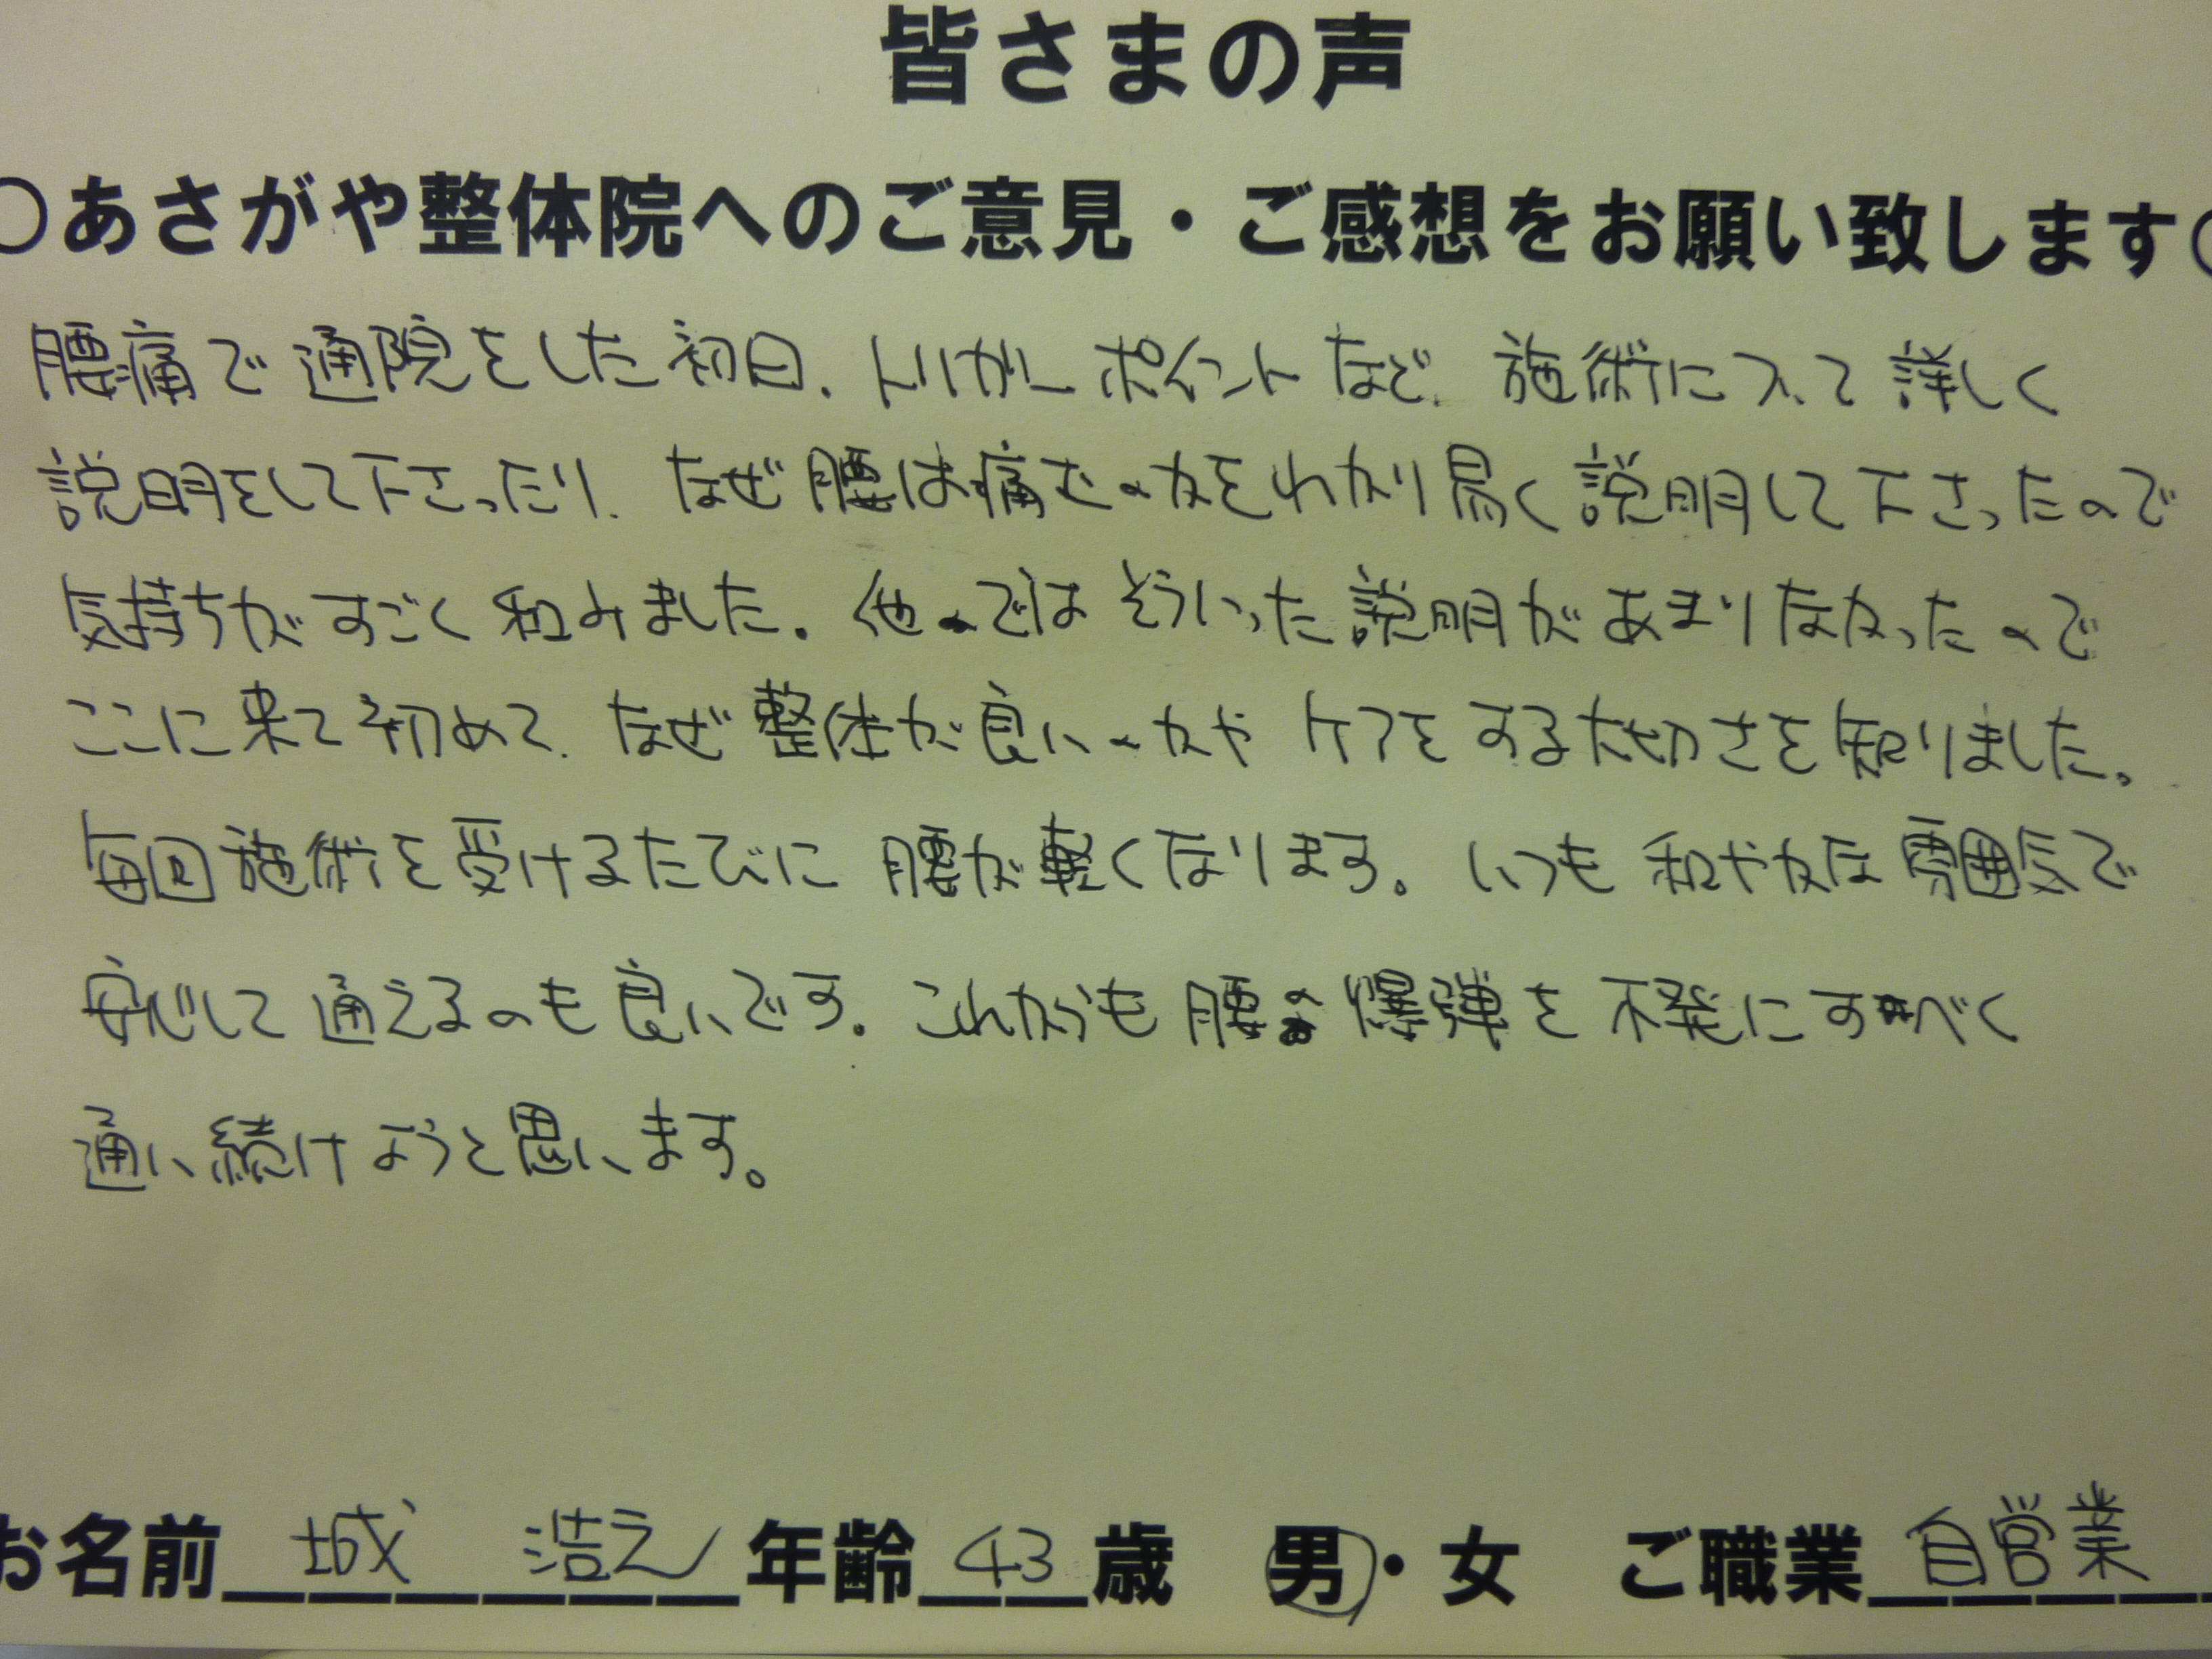 皆さまの声
○あさがや整体院へのご意見・ご感想をお願い致します○
腰痛で通院をした初日、トリガーポイントなど、施術について詳しく
説明をして下さったり、なぜ腰は痛むのかをわかり易く説明して下さったので
気持ちがすごく和みました。他のではそういった説明があまりなかったので
ここに来て初めて、なぜ整体が良いのかや ケアをする大切さを知りました。
毎回施術を受けるたびに 腰が軽くなります。いつも 和やかな雰囲気で
安心して通えるのも良いです。これからも腰の爆弾を不発にすべく
通い続けようと思います。
お名前 城 浩之 年齢 43 歳 男・女 ご職業 自営業